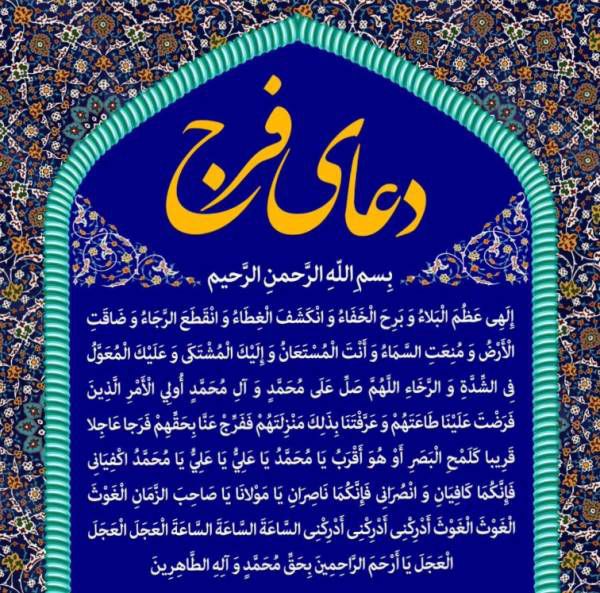 دعای فرج
بِسمِ اللّهِ الرَّحمنِ الرَّحیم
إِلَهِی عَظُمَ الْبَلاءُ وَ بَرِحَ الْخَفَاءُ وَ انْکَشَفَ الْغِطَاءُ وَ انْقَطَعَ الرَّجَاءُ وَ ضَاقَتِ
الْأَرْضُ وَ مُنِعَتِ السَّمَاءُ وَ أَنْتَ الْمُسْتَعَانُ وَ إِلَیْکَ الْمُشْتَکَی وَ عَلَیْکَ الْمُعَوَّلُ
فِی الشِّدَّةِ وَ الرَّخَاءِ اللَّهُمَّ صَلِّ عَلَی مُحَمَّدٍ وَ آلِ مُحَمَّدٍ أُولِي الْأَمْرِ الَّذِینَ
فَرَضْتَ عَلَیْنَا طَاعَتَهُمْ وَ عَرَّفْتَنَا بِذَلِکَ مَنْزِلَتَهُمْ فَفَرِّجْ عَنَّا بِحَقِّهِمْ فَرَجا عَاجِلا
قَرِیبا کَلَمْحِ الْبَصَرِ أَوْ هُوَ أَقْرَبُ یَا مُحَمَّدُ یَا عَلِيُّ یَا عَلِيُّ یَا مُحَمَّدُ اکْفِیَانِی
فَإِنَّکُمَا کَافِیَانِ وَ انْصُرَانِی فَإِنَّکُمَا نَاصِرَانِ یَا مَوْلانَا یَا صَاحِبَ الزَّمَانِ الْغَوْثَ
الْغَوْثَ الْغَوْثَ أَدْرِکْنِی أَدْرِکْنِی أَدْرِکْنِی السَّاعَةَ السَّاعَةَ السَّاعَةَ الْعَجَلَ الْعَجَلَ
الْعَجَلَ یَا أَرْحَمَ الرَّاحِمِینَ بِحَقِّ مُحَمَّدٍ وَ آلِهِ الطَّاهِرِینَ